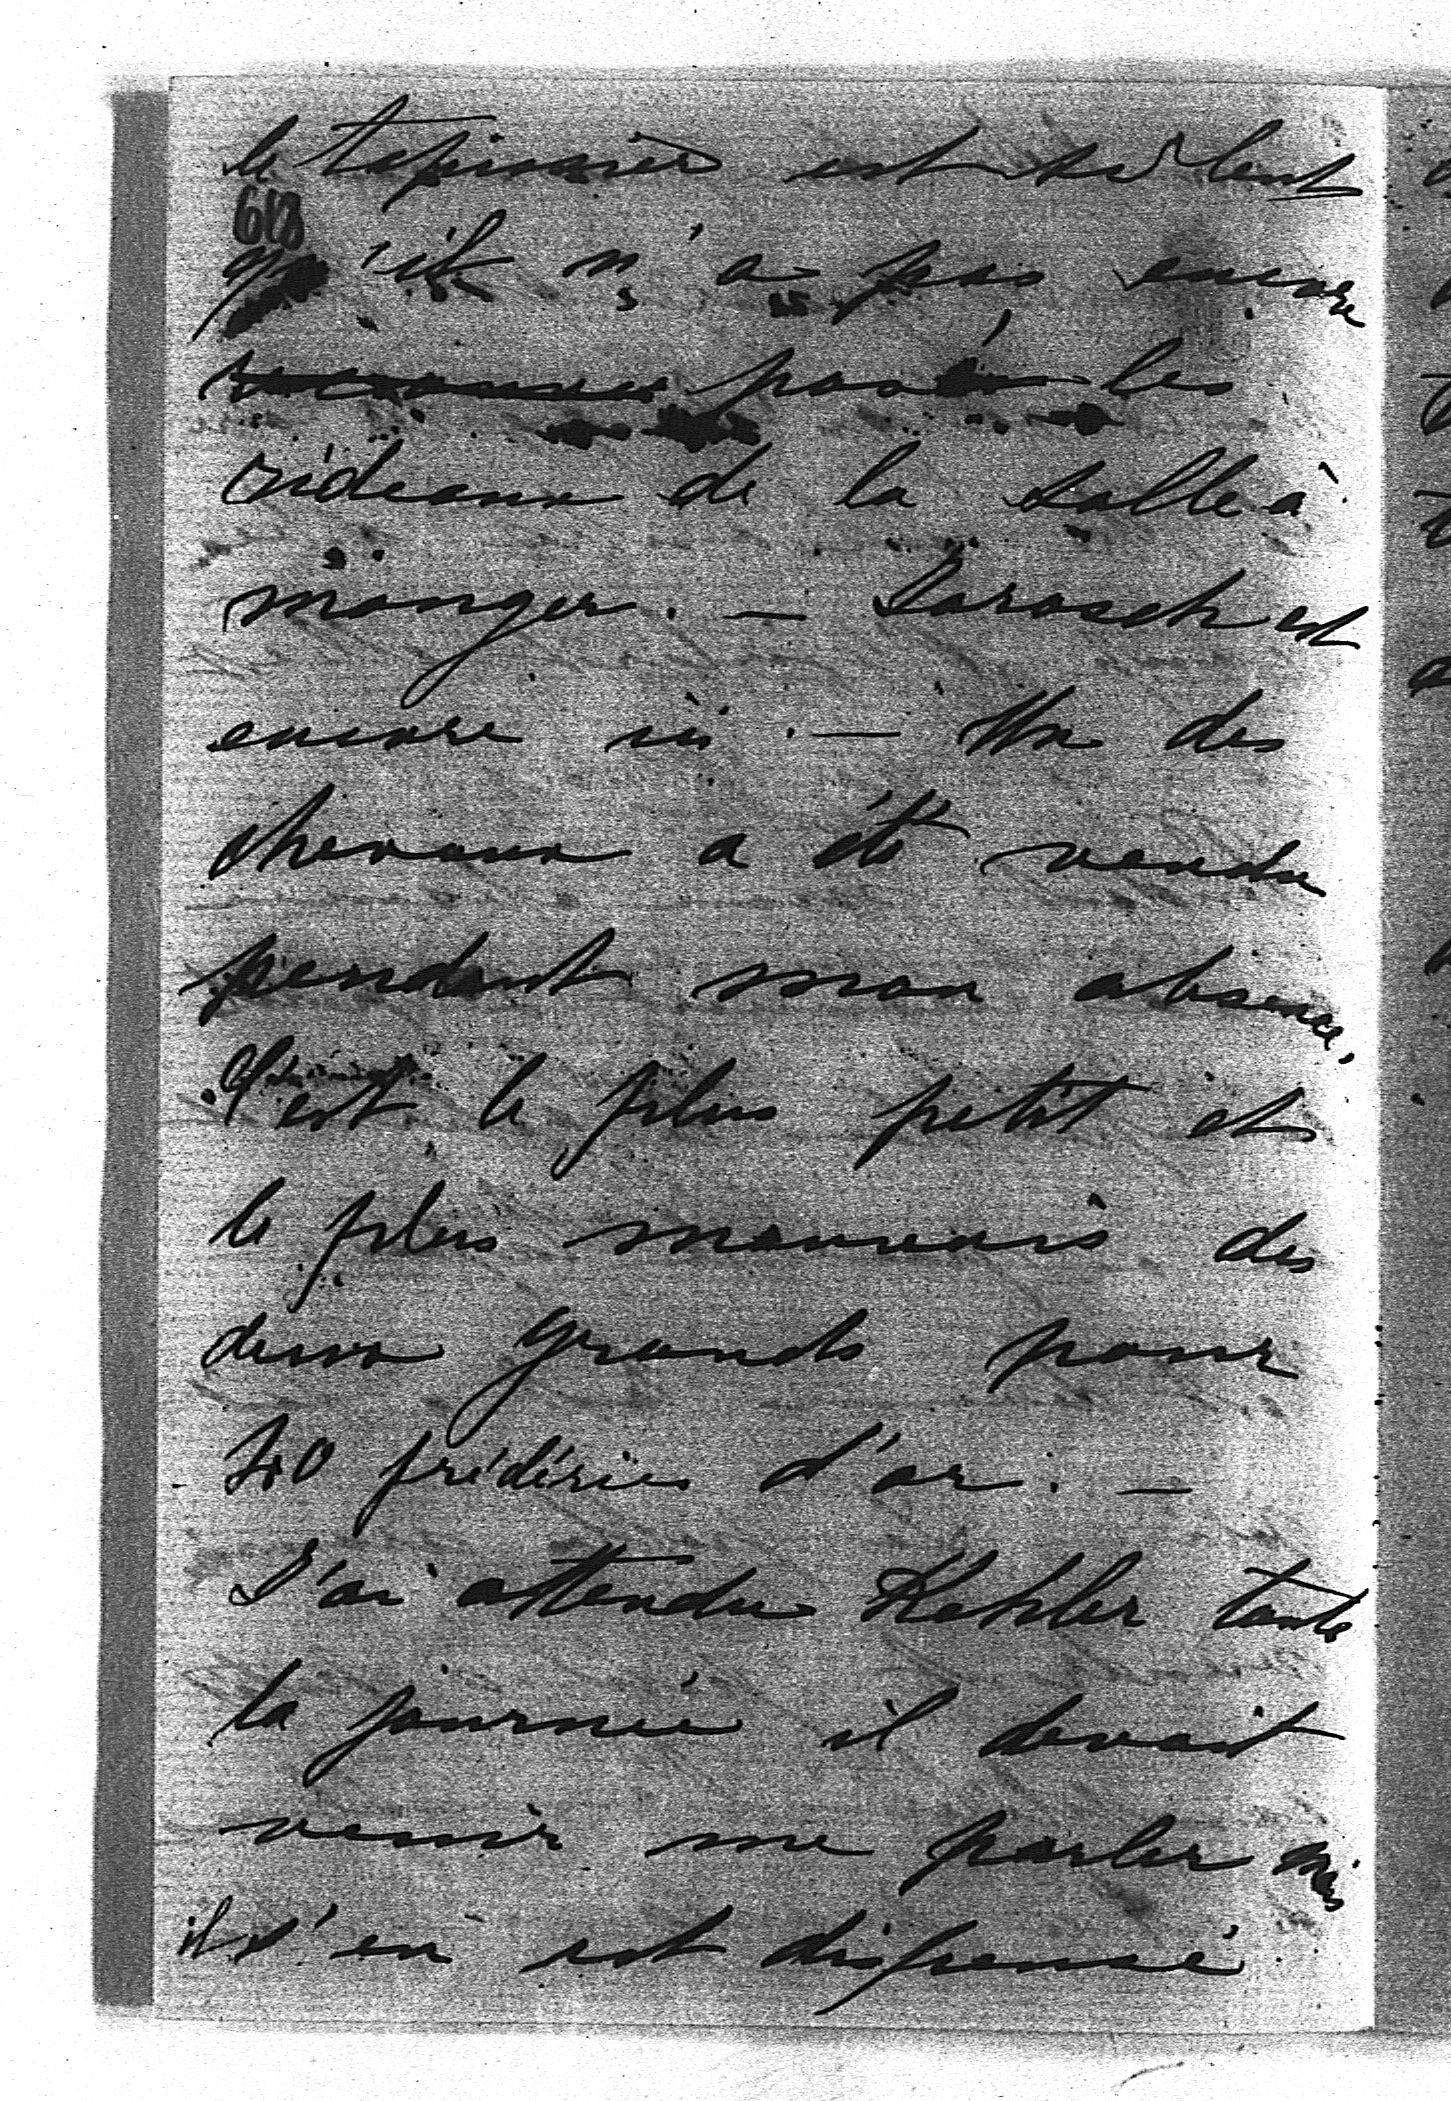 le tapissier est si lent
618
qu'il n'a pas encore
posé les
rideaux de la salle à
manger. — Jarosch est
encore ici. — Un des
chevaux a été vendu
pendant mon absence,
C'est le plus petit et
le plus mauvais des
deux grands pour
frédérics d'or. —
J'ai attendu Kehler toute
la journée il devait
venir me parler mais
il s'en est dispensé